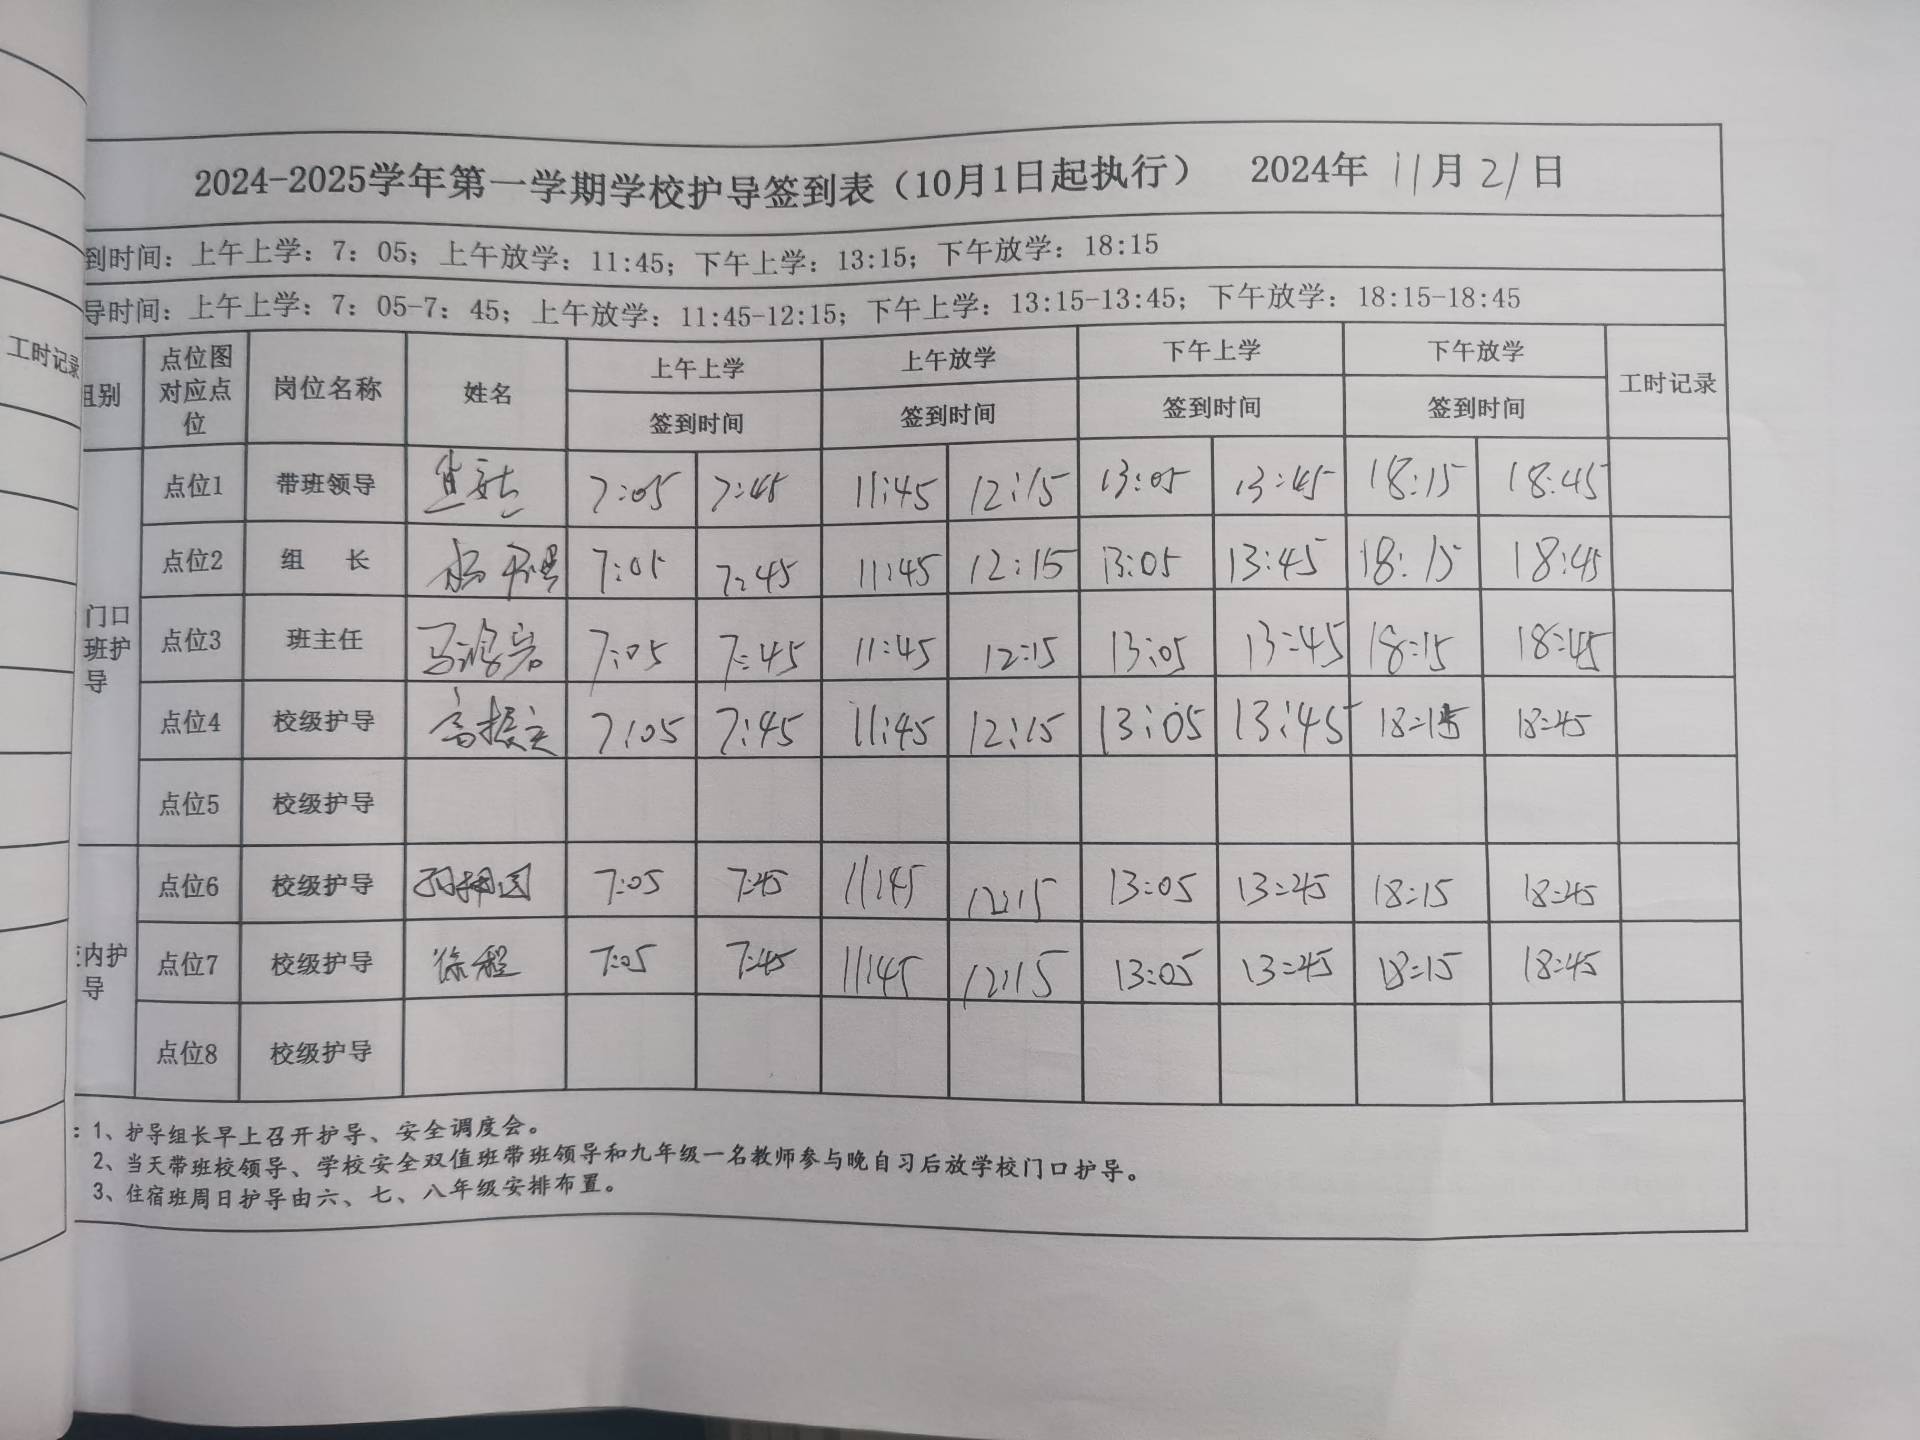 工时记录
2024-2025学年第一学期学校护导签到表（10月1日起执行） 2024年 11月 21日
到时间：上午上学：7：05；上午放学：11:45；下午上学：13:15；下午放学：18:15
导时间：上午上学：7：05-7：45；上午放学：11:45-12:15；下午上学：13:15-13:45；下午放学：18:15-18:45
组别 点位图对应点位 岗位名称 姓名 上午上学 上午放学 下午上学 下午放学 工时记录
签到时间 签到时间 签到时间 签到时间
点位1 带班领导 7:05 7:45 11:45 12:15 13:05 13:45 18:15 18:45
点位2 组 长 7:05 7:45 11:45 12:15 13:05 13:45 18:15 18:45
门口班护导
点位3 班主任 7:05 7:45 11:45 12:15 13:05 13:45 18:15 18:45
点位4 校级护导 7:05 7:45 11:45 12:15 13:05 13:45 18:15 18:45
点位5 校级护导
点位6 校级护导 7:05 7:45 11:45 12:15 13:05 13:45 18:15 18:45
内护导
点位7 校级护导 徐程 7:05 7:45 11:45 12:15 13:05 13:45 18:15 18:45
点位8 校级护导
：1、护导组长早上召开护导、安全调度会。
2、当天带班校领导、学校安全双值班带班领导和九年级一名教师参与晚自习后放学校门口护导。
3、住宿班周日护导由六、七、八年级安排布置。